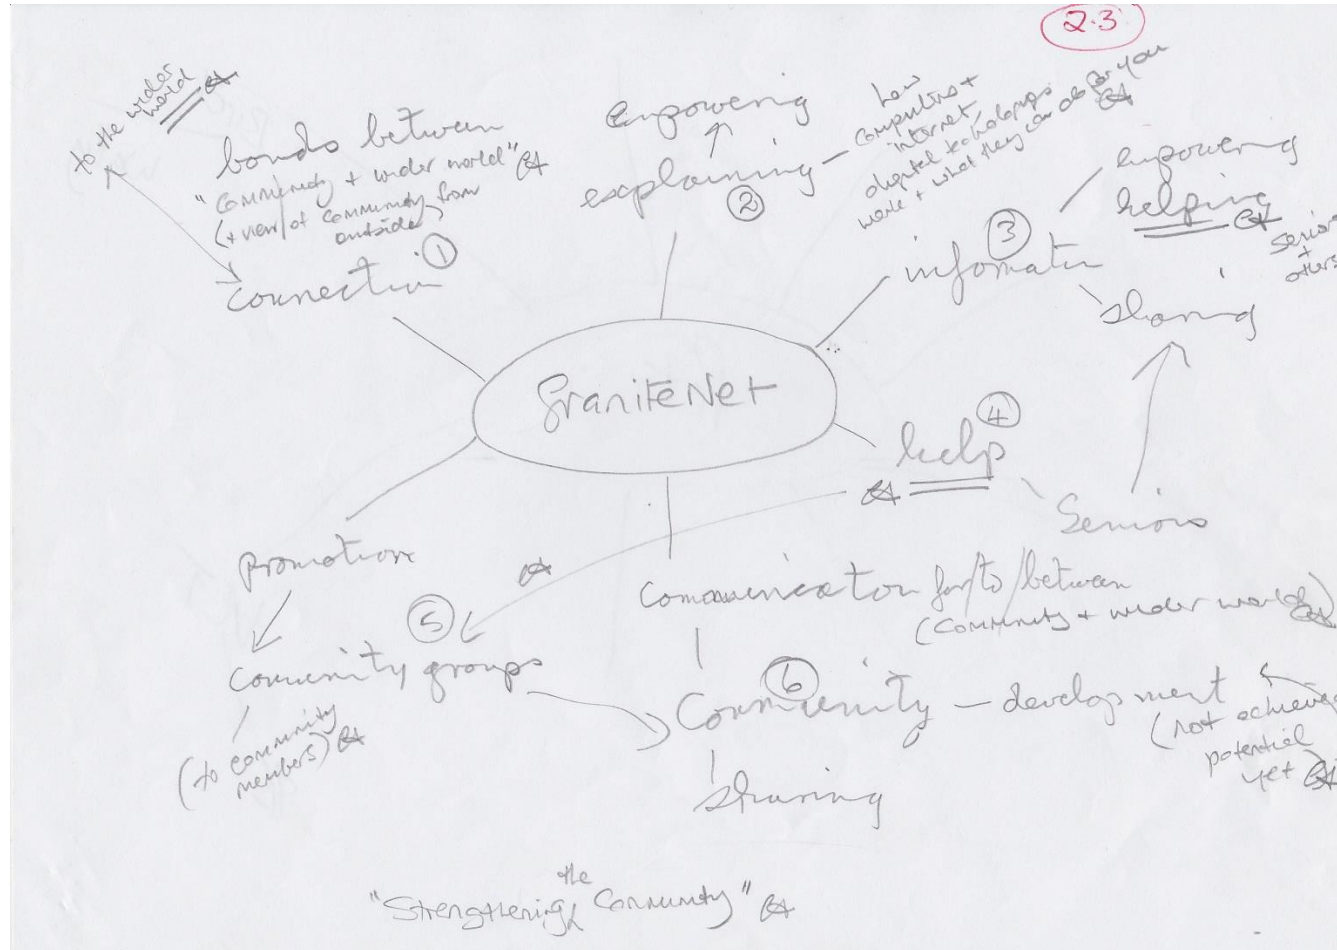 2.3
to the wider
world
bonds between
"community + wider world"
(+ view of community from
outside)
1
connection
empowering
explaining
2
how
computers +
internet,
digital technologies
work + what they can do for you
empowering
helping
seniors
+
others
3
information
sharing
GraniteNet
4
help
seniors
promotion
5
community groups
(to community
members)
communication for/to/between
(community + wider world)
6
Community – development
(not achieved
potential
yet)
sharing
the
"Strengthening Community"